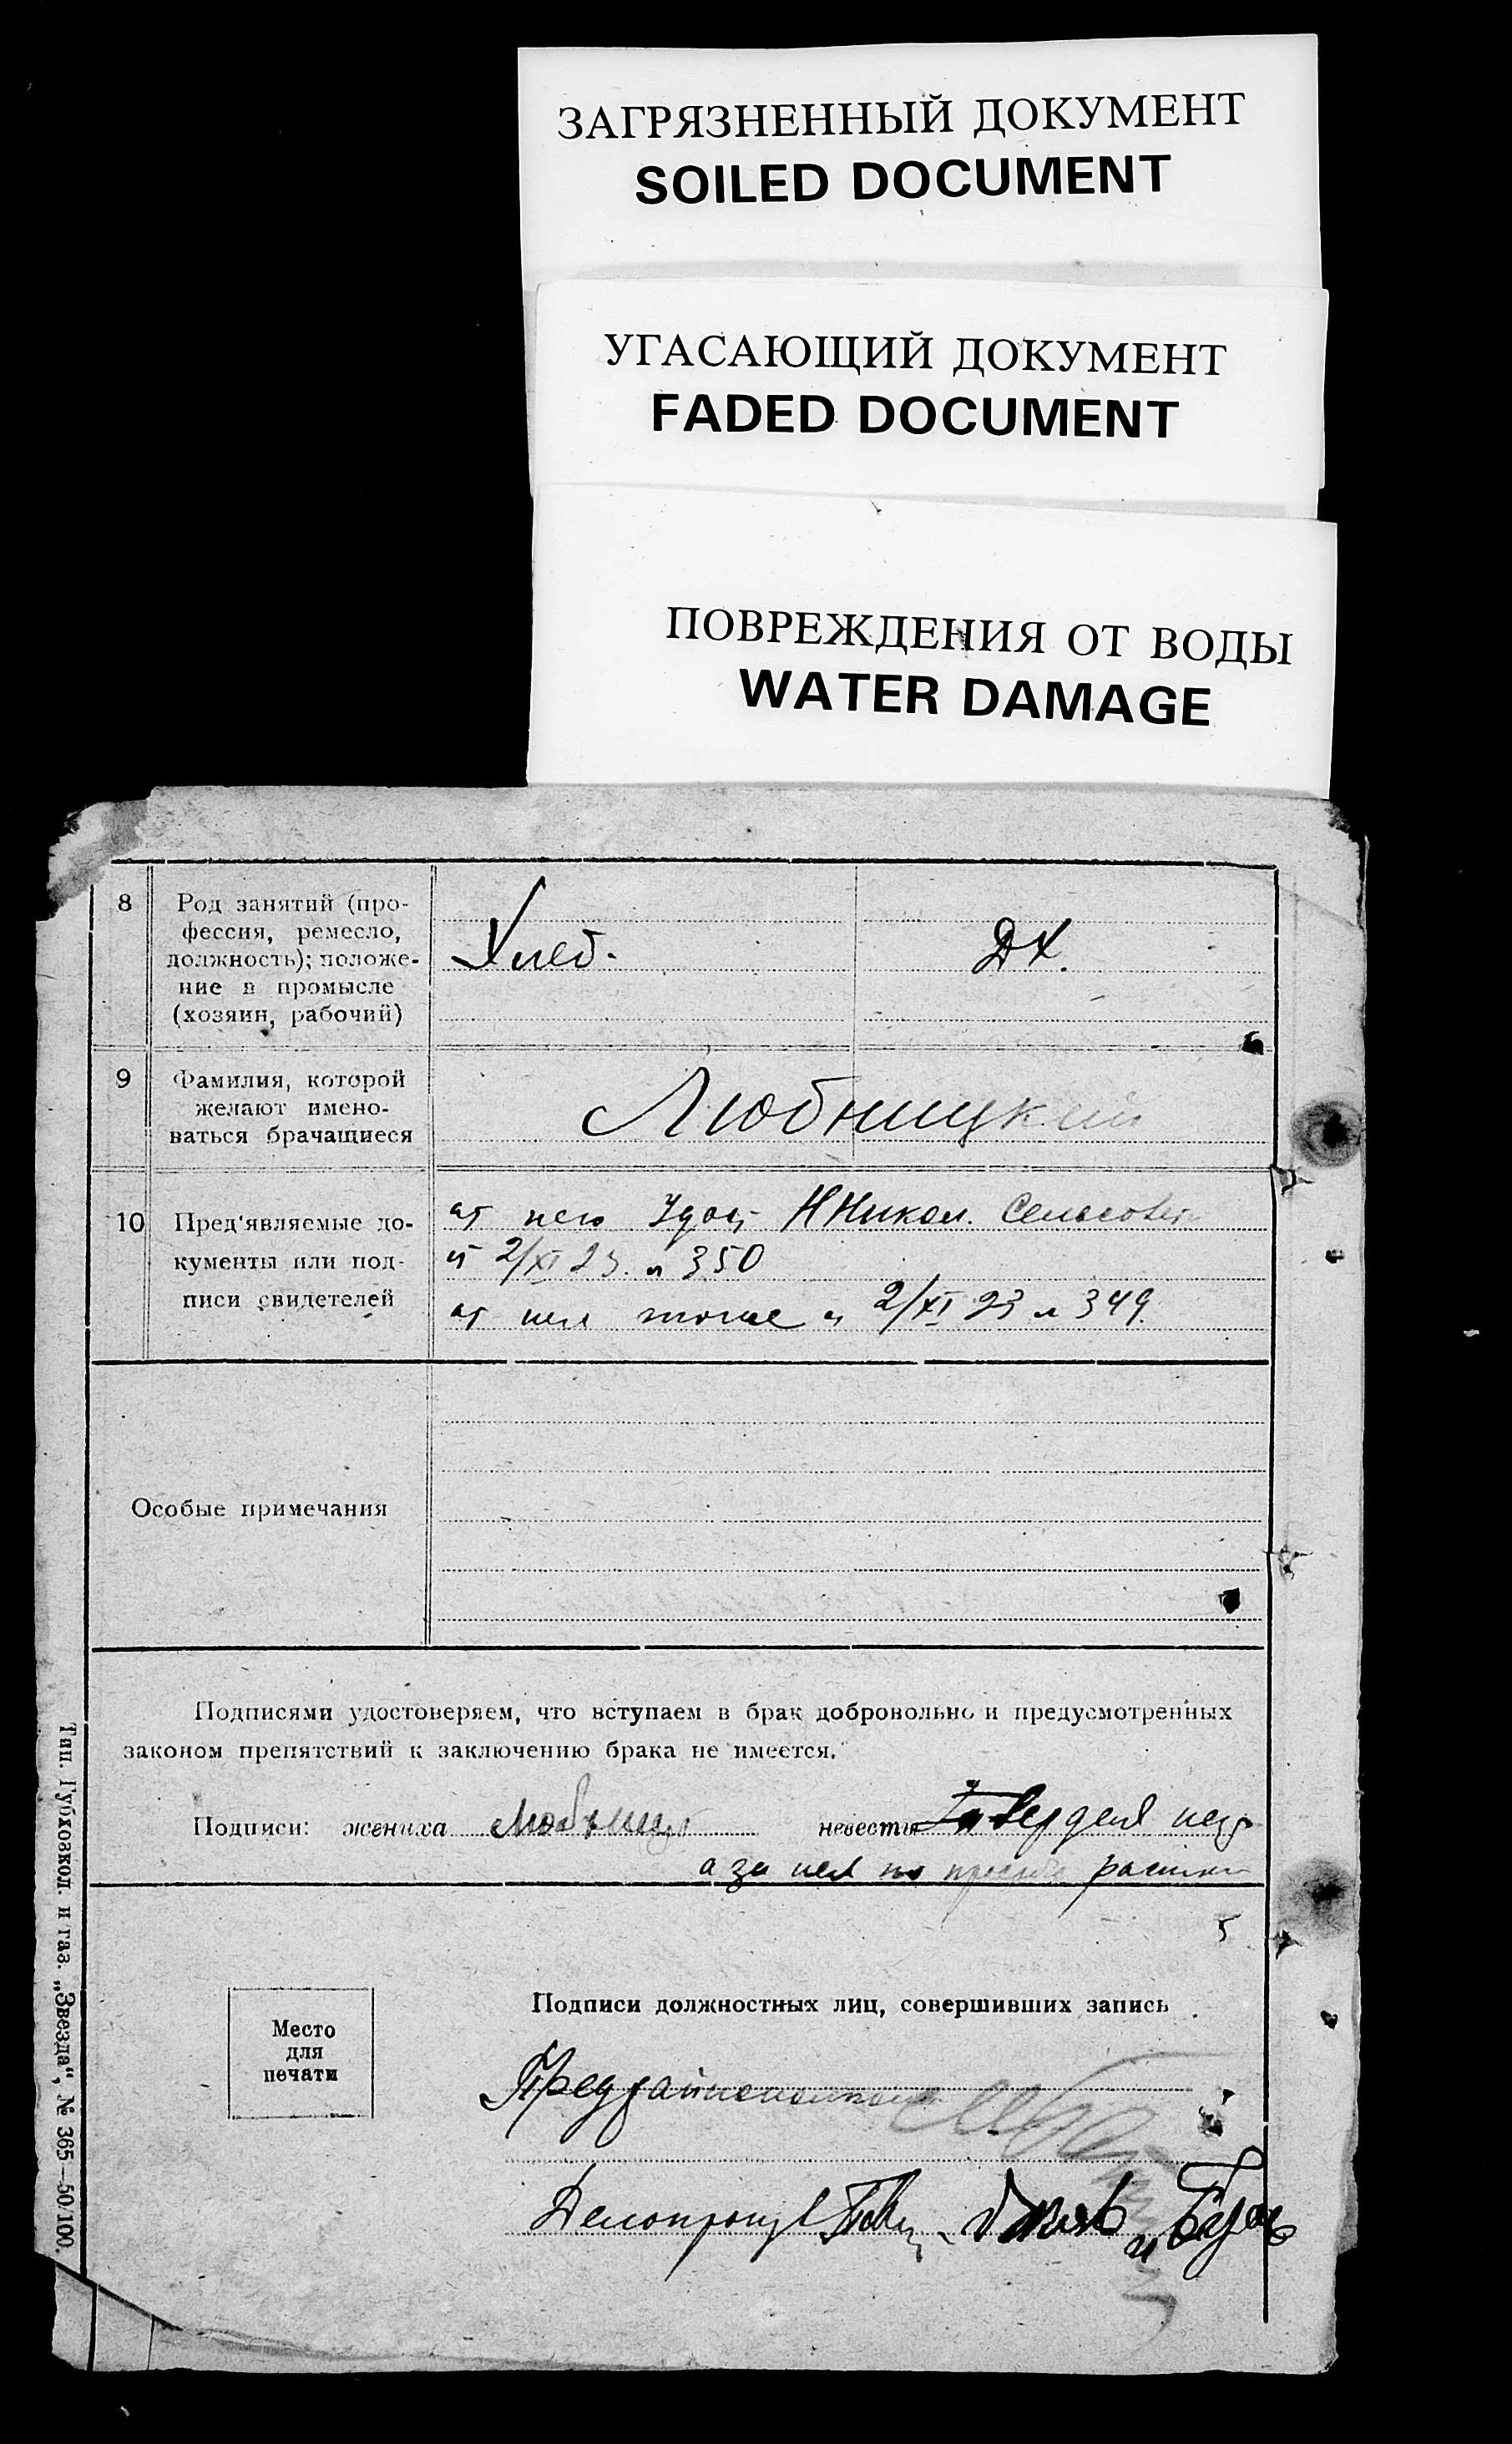 ЗАГРЯЗНЕННЫЙ ДОКУМЕНТ
SOILED DOCUMENT
УГАСАЮЩИЙ ДОКУМЕНТ
FADED DOCUMENT
ПОВРЕЖДЕНИЯ ОТ ВОДЫ
WATER DAMAGE
8
Род занятий (про-
фессия, ремесло,
должность); положе-
ние в промысле
(хозяин, рабочий)
Хлеб.
ДХ.
9
Фамилия, которой
желают имено-
ваться брачащиеся
Любницкий
10
Пред'являемые до-
кументы или под-
писи свидетелей
от него Удост ННикол. Сельсовета
от 2/XI 23. № 350
от нея тоже от 2/XI 23 № 349.
Особые примечания
Подписями удостоверяем, что вступаем в брак добровольно и предусмотренных
законом препятствий к заключению брака не имеется.
Подписи: жениха Любниц невесты
а за нея по просьбе
Подписи должностных лиц, совершивших запись
Место
для
печати
Предрайисполкома
Делопроизв
Тип. Губховкол. и газ. „Звезда“, № 365—50/100.